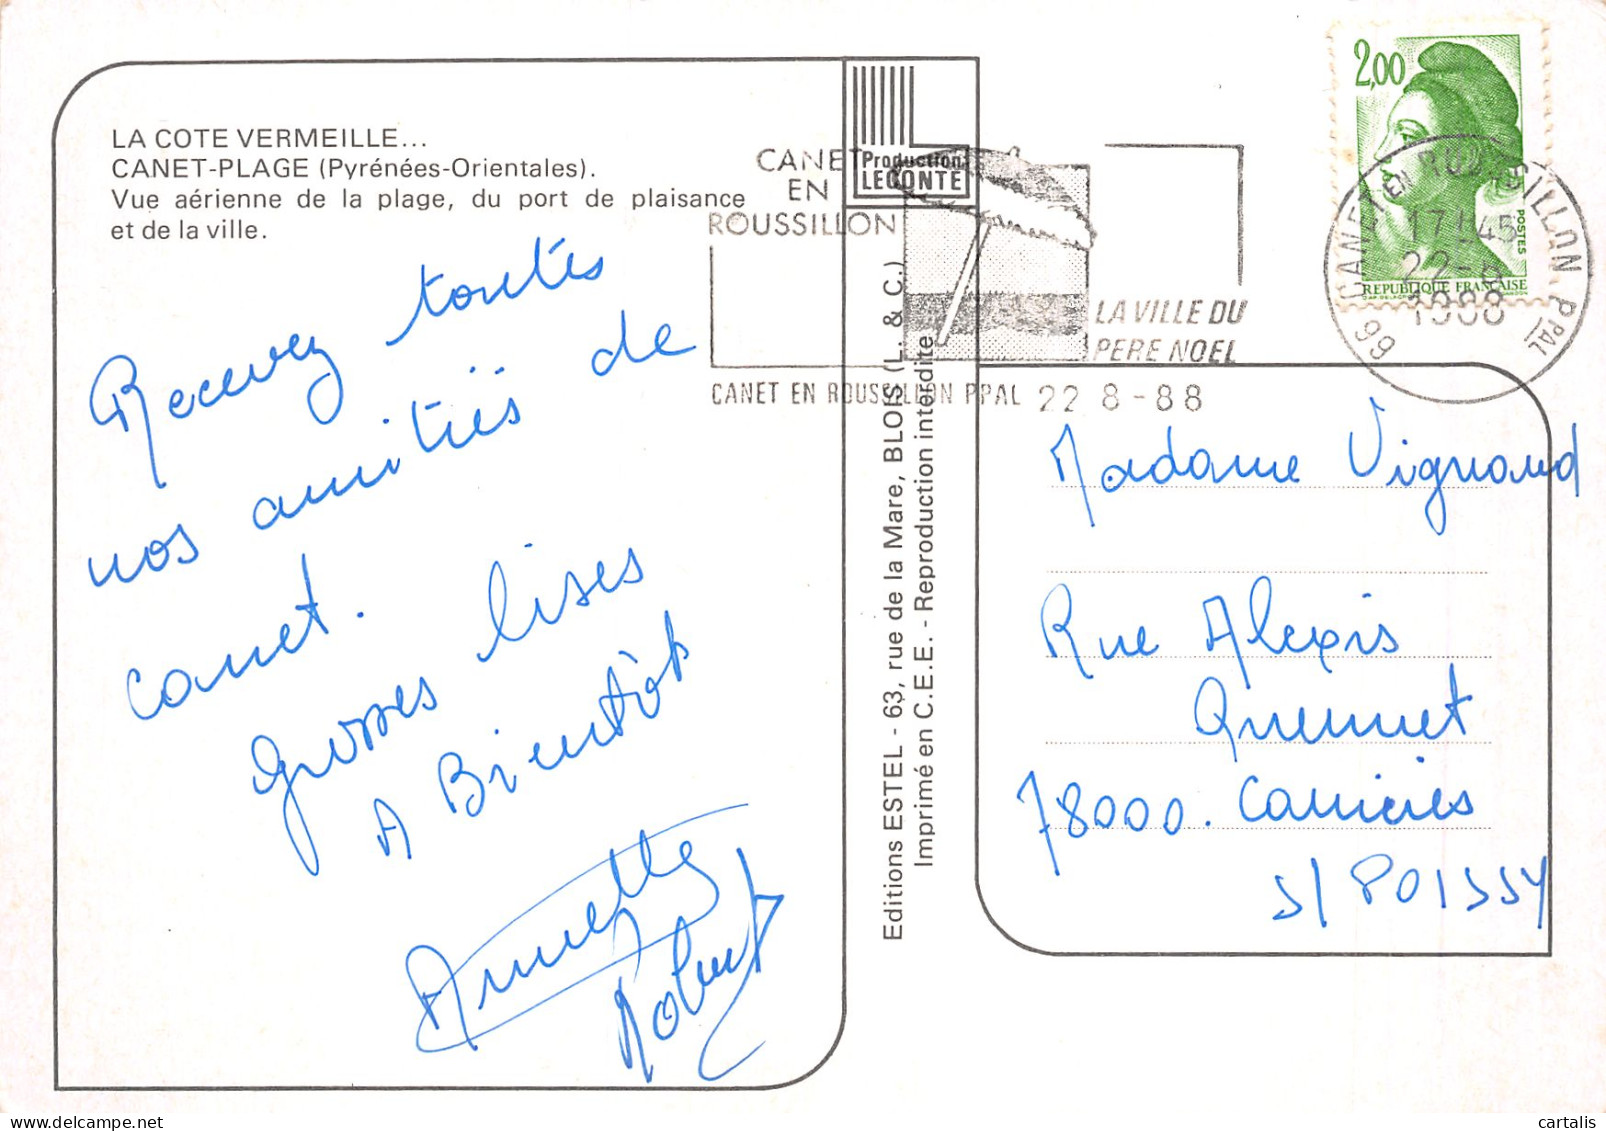 LA COTE VERMEILLE...
CANET-PLAGE (Pyrénées-Orientales).
Vue aérienne de la plage, du port de plaisance
et de la ville.
Recevez toutes
nos amitiés de
canet.
grosses bises
A Bientôt
Annette
Robert
Production
LECONTE
CANET
EN
ROUSSILLON
LA VILLE DU
PERE NOEL
CANET EN ROUSSILLON PPAL 22 8-88
Editions ESTEL - 63, rue de la Mare, BLOIS (L. & C.)
Imprimé en C.E.E. - Reproduction interdite
2,00
POSTES
REPUBLIQUE FRANÇAISE
66 CANET EN ROUSSILLON PPAL
17H45
22-8
1988
Madame Vignaud
Rue Alexis
Quennet
78000. Carrières
S/ POISSY
cartalis